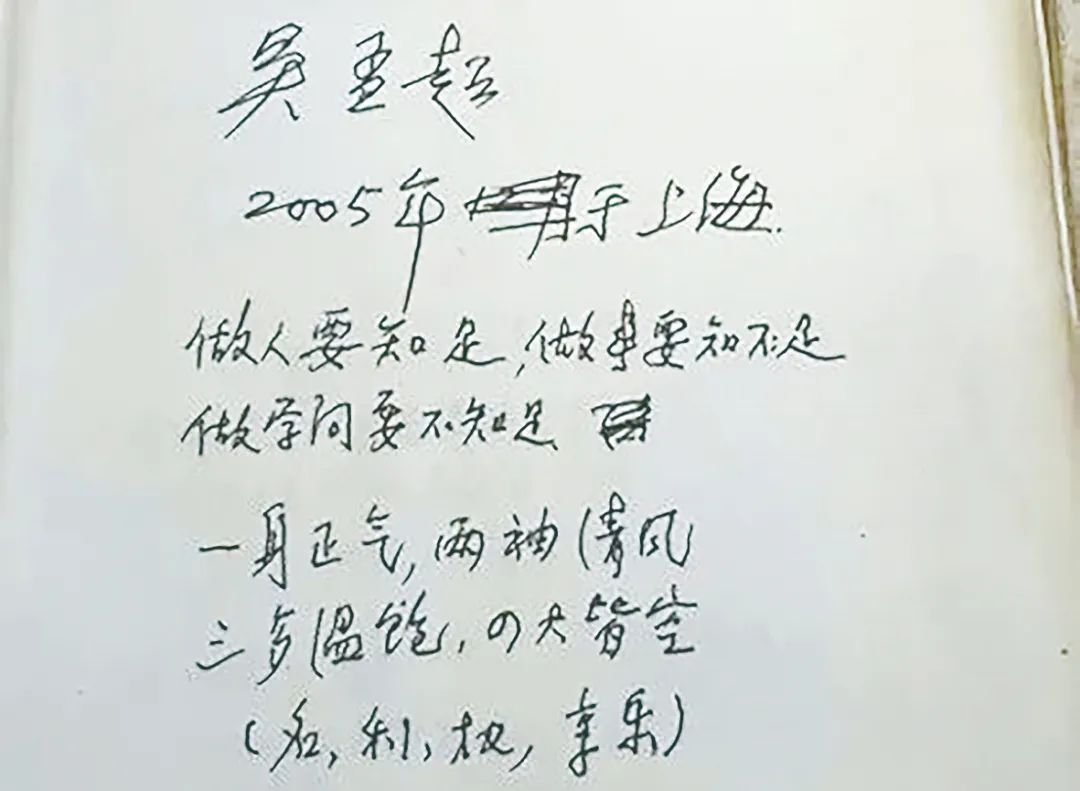 吴孟超
2005年 月于上海.
做人要知足,做事要知不足
做学问要不知足
一身正气,两袖清风
三多温饱,四大皆空
(名,利,权,享乐)